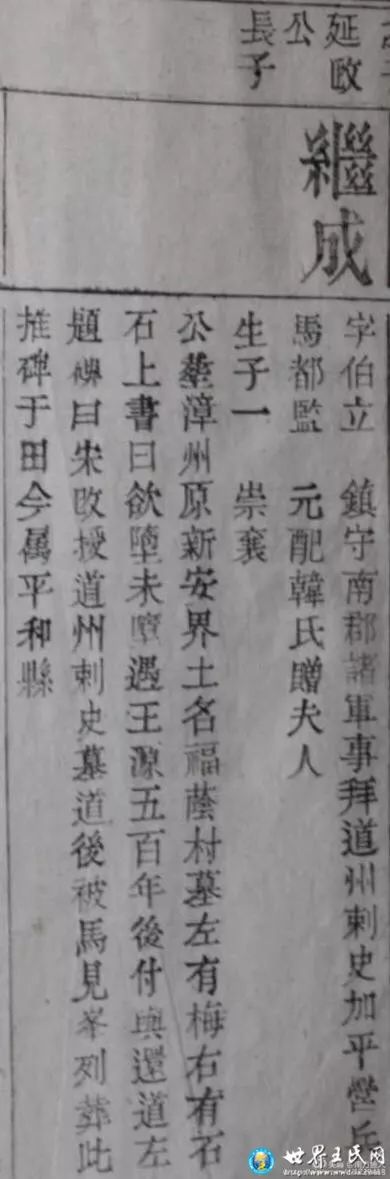 延政
公
長子
繼成
字伯立 鎮守南郡諸軍事拜道州刺史加平營兵
馬都監 元配韓氏贈夫人
生子一 崇襄
公塟漳州原新安界土名福蔭村墓左有梅右有石
石上書曰欲墮未墮遇王源五百年後付與還道左
題碑曰宋敗授道州刺史墓道後被馬見峯列葬此
推碑于田今属平和縣
世界王氏网